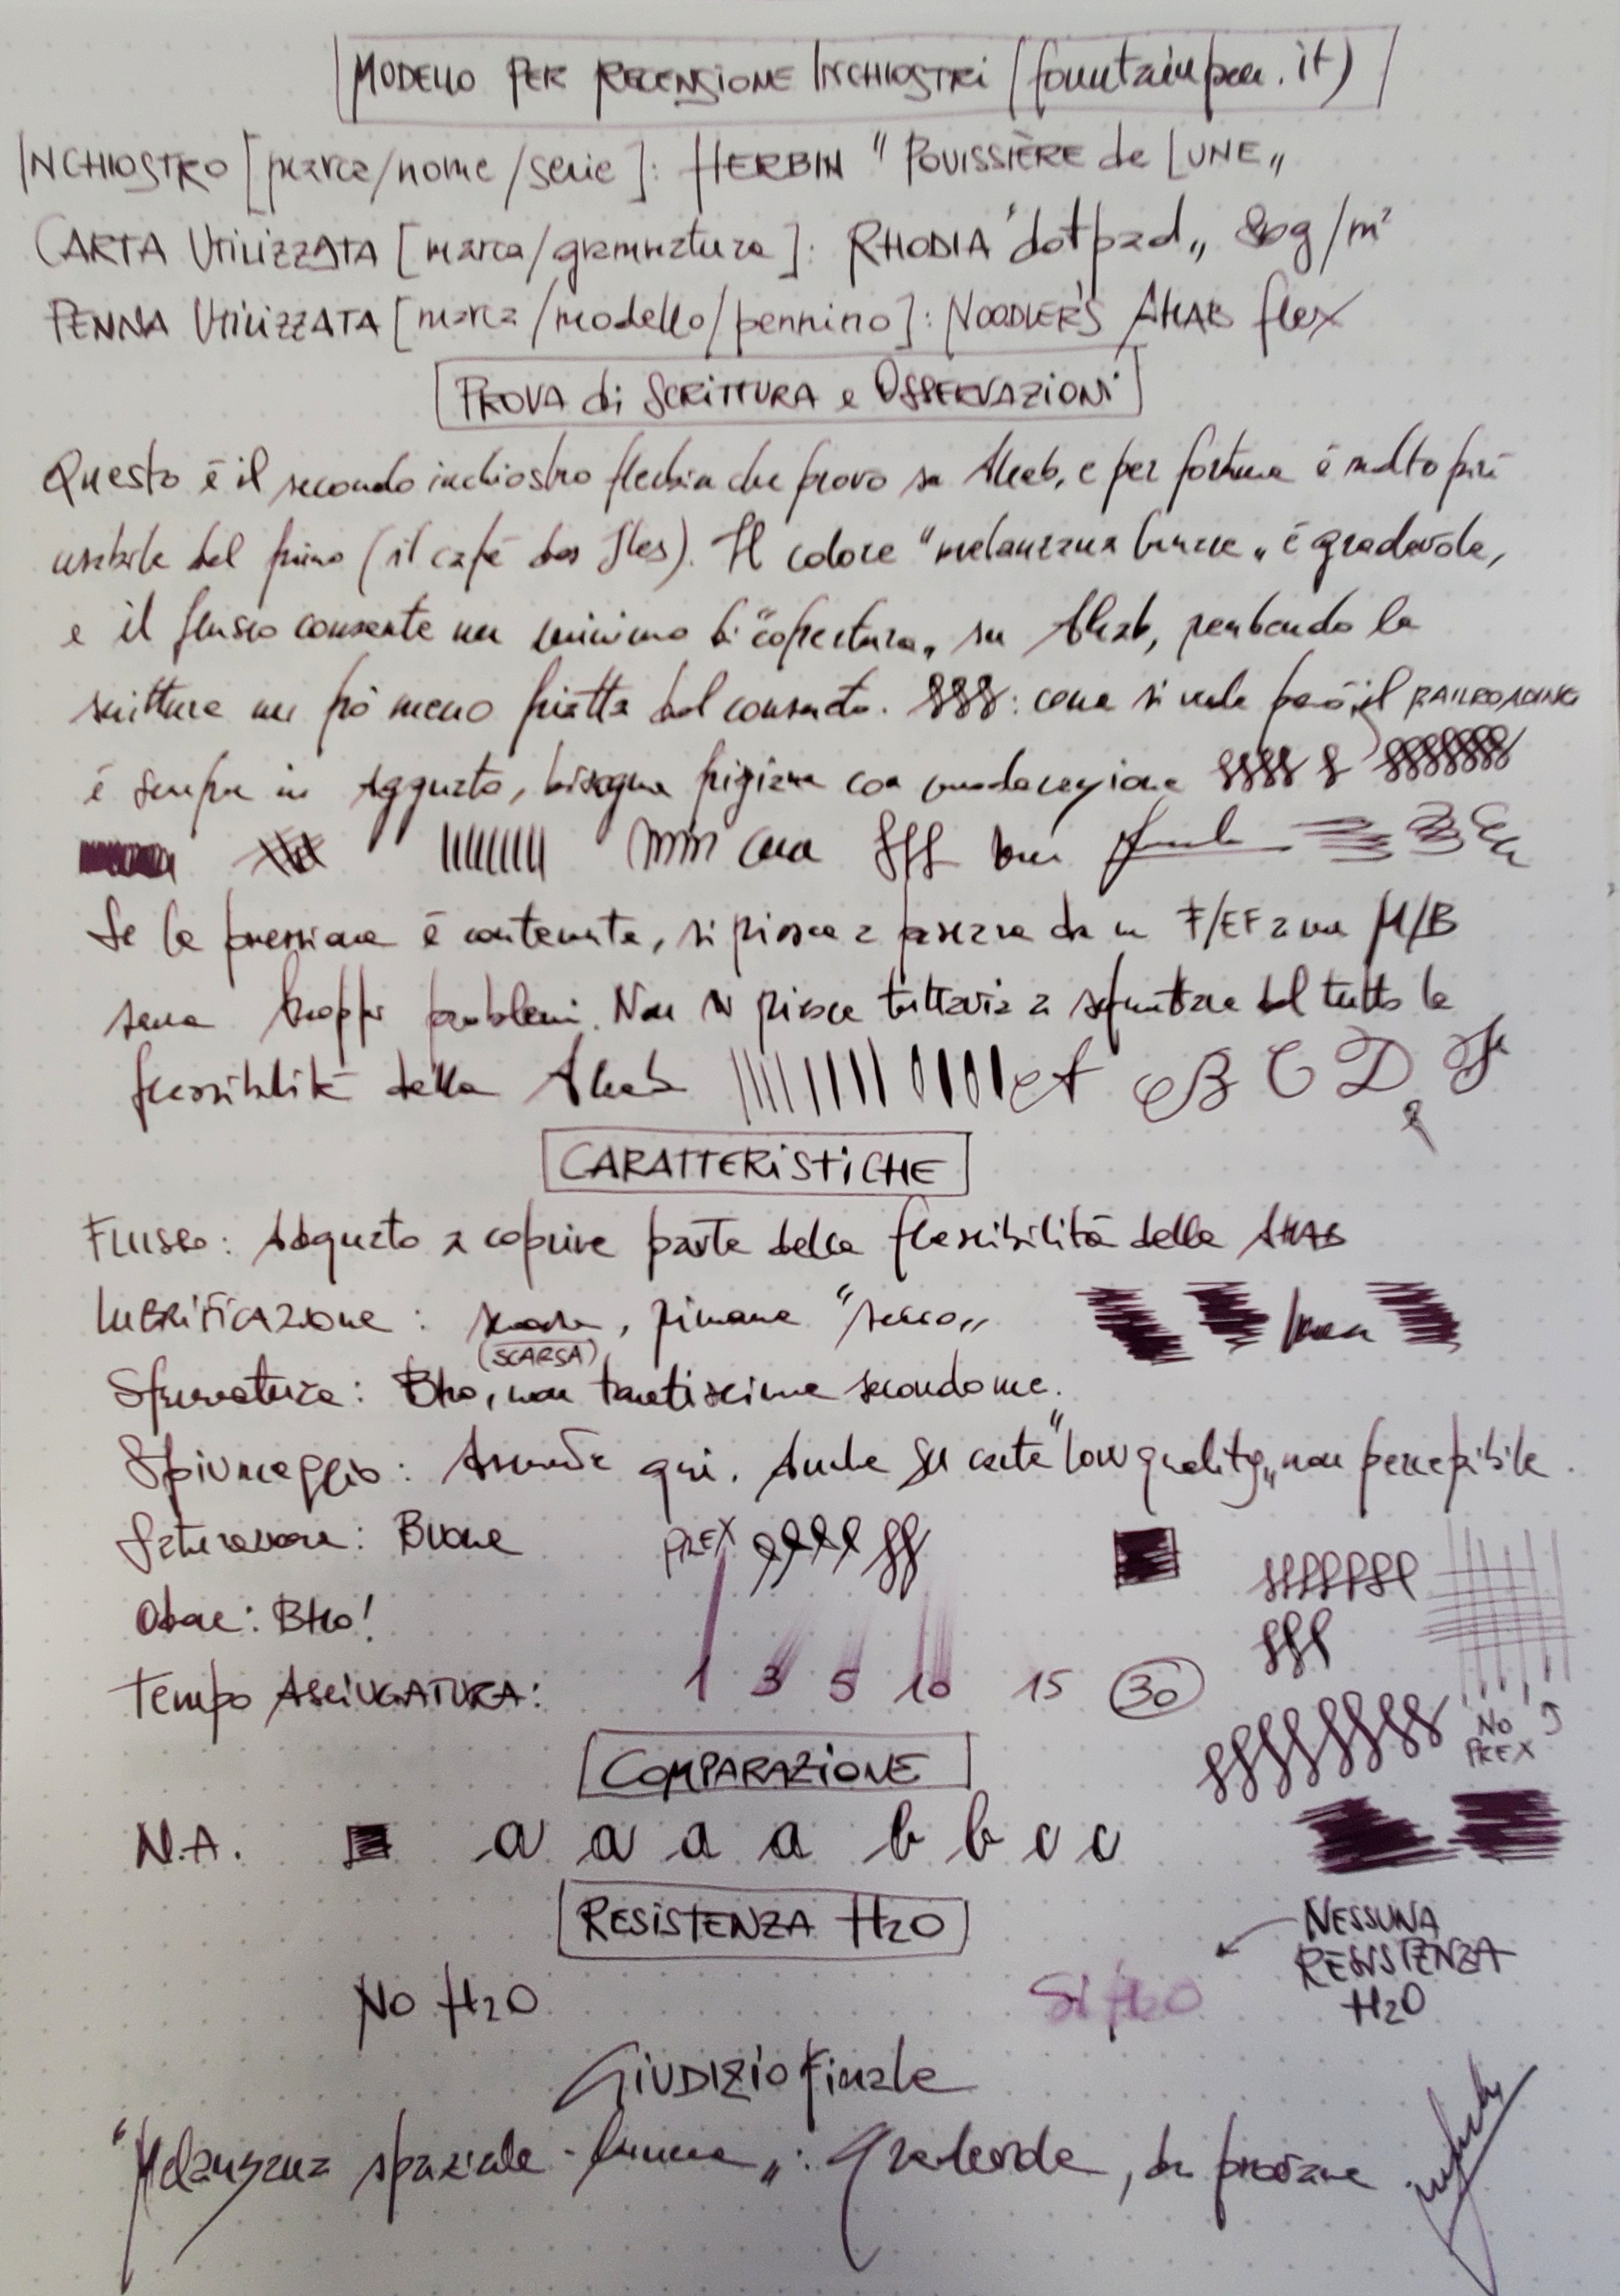 MODELLO PER RECENSIONE INCHIOSTRI (fountainpen.it)
INCHIOSTRO [marca/nome/serie]: HERBIN "POUISSIÈRE de LUNE"
CARTA UTILIZZATA [marca/grammatura]: RHODIA "dotpad" 80g/m²
PENNA UTILIZZATA [marca/modello/pennino]: NOODLER'S AHAB flex
PROVA di SCRITTURA e OSSERVAZIONI
Questo è il secondo inchiostro Herbin che provo su Ahab, e per fortuna è molto più
usabile del primo (il café des Iles). Il colore "melanzana lunare" è gradevole,
e il flusso consente un minimo di "copertura" su Ahab, rendendo la
scrittura un pò meno piatta del consueto. : come si vede però il RAILROADING
è sempre in agguato, bisogna pigiare con moderazione
Se la pressione è contenuta, si riesce a passare da un F/EF a un M/B
senza troppi problemi. Non si riesce tuttavia a sfruttare del tutto la
flessibilità della Ahab A B C D
CARATTERISTICHE
Flusso: Adeguato a coprire parte della flessibilità della AHAB
LUBRIFICAZIONE: scarsa, rimane "secco"
(SCARSA)
Sfumature: Bho, non tantissime secondo me.
Spiumaggio: Assente qui. Anche su carta "low quality" non percepibile.
Saturazione: Buona FLEX
Odore: Bho!
Tempo ASCIUGATURA: 1 3 5 10 15 30
NO FLEX
COMPARAZIONE
N.A. a a a a b b c c
RESISTENZA H2O
No H2O Si H2O NESSUNA RESISTENZA H2O
GIUDIZIO Finale
"Melanzana spaziale - lunare": Gradevole, da provare